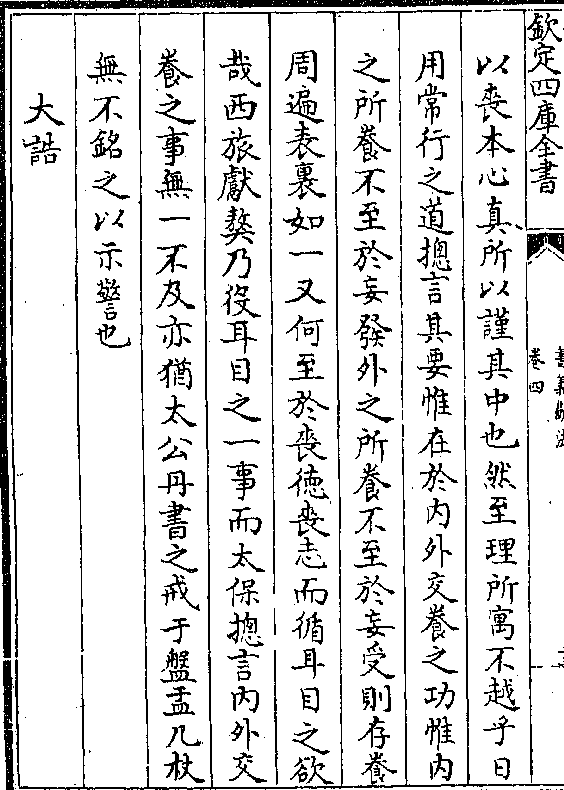 欽定四庫全書
卷四
以喪本心真所以謹其中也然至理所寓不越乎日
用常行之道摠言其要惟在於内外交養之功惟内
之所養不至於妄發外之所養不至於妄受則存養
周遍表裏如一又何至於喪徳喪志而循耳目之欲
哉西旅獻獒乃役耳目之一事而太保摠言内外交
養之事無一不及亦猶太公丹書之戒于盤盂几杖
無不銘之以示警也
大誥